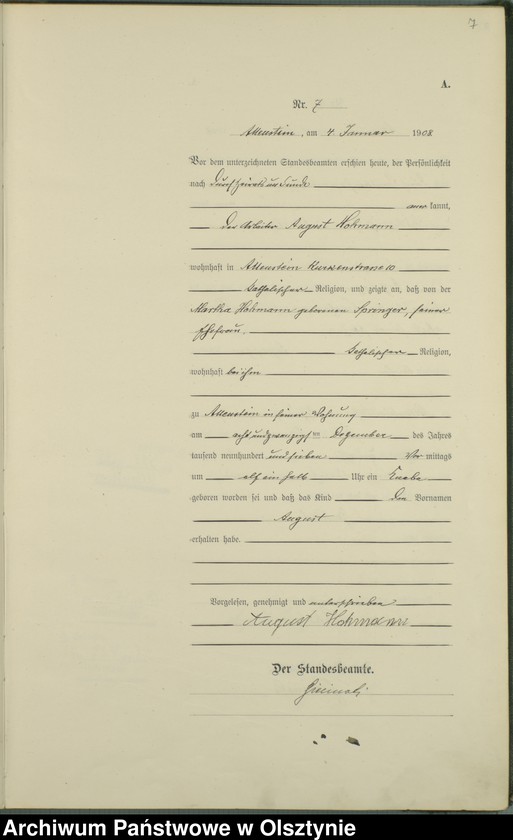 7
A.
Nr. 7
Allenstein, am 4 Januar 1908
Vor dem unterzeichneten Standesbeamten erschien heute, der Persönlichkeit
nach durch Heiratsurkunde
aner kannt,
der Arbeiter August Hohmann
wohnhaft in Allenstein Kurzenstrasse 10
katholischer Religion, und zeigte an, daß von der
Martha Hohmann geborenen Springer, seiner
Ehefrau,
katholischer Religion,
wohnhaft bei ihm
zu Allenstein in seiner Wohnung
am acht und zwanzigsten Dezember des Jahres
tausend neunhundert und sieben Vor mittags
um elf ein halb Uhr ein Knabe
geboren worden sei und daß das Kind den Vornamen
August
erhalten habe.
Vorgelesen, genehmigt und unterschrieben
August Hohmann
Der Standesbeamte.
Archiwum Państwowe w Olsztynie